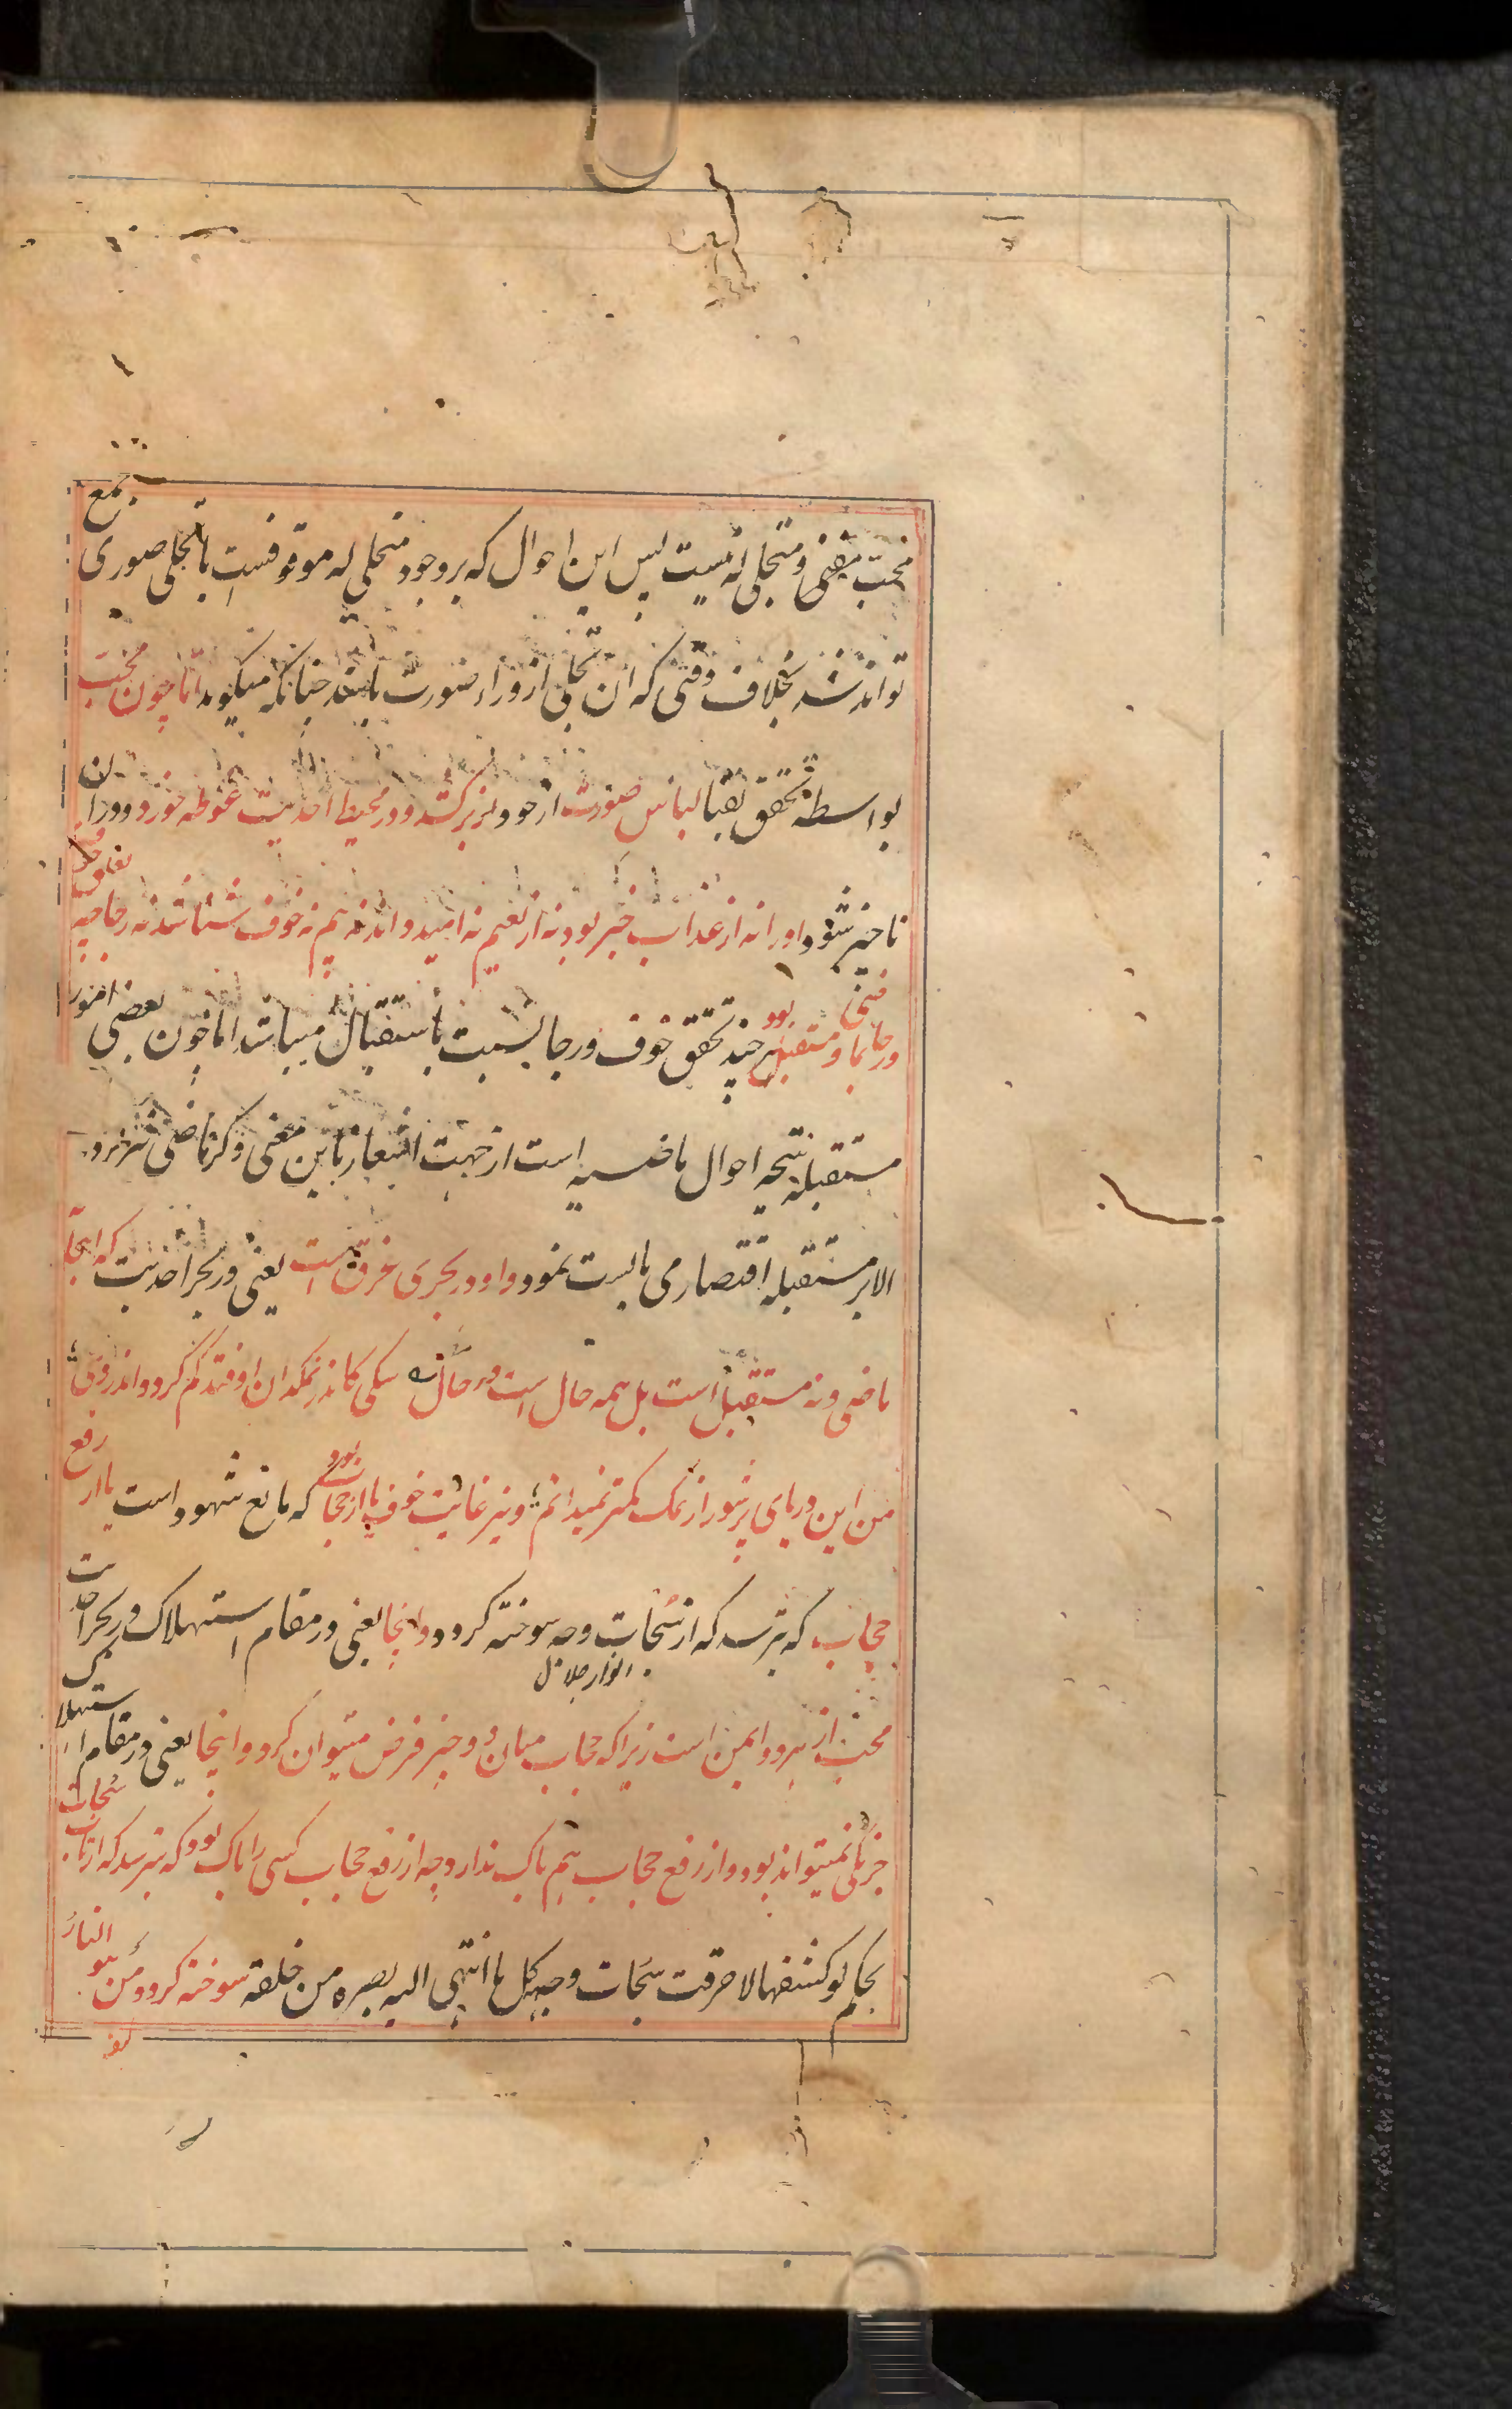 محبّ مفنی و متجلی له نیست پس این احوال که بر وجود متجلی له موقوفست با تجلی صوری جمع
تواند شد بخلاف وقتی که آن تجلی از وراء صورت باشد چنانکه میگوید امّا چون محبّ
بواسطه تحقق بقبا لباس صورت از خود بر کشد و در محیط احدیت غوطه خورد و در آن
ناچیز شود او را نه از عذاب خبر بود نه از نعیم نه امید داند نه بیم نه خوف شناسد نه رجا چه تعلق خوف
و رجا بماضی و مستقبل بود هر چند تحقق خوف و رجا نسبت باستقبال میباشد اما چون بعضی امور
مستقبله نتیجه احوال ماضیه است از جهت اشعار باین معنی ذکر ماضی نیز کرد
الا بر مستقبله اقتصار می بایست نمود و او در بحری غرق است یعنی در بحر احدیت که آنجا نه
ماضی و نه مستقبل است بل همه حال است در حال سگی کاندر نمکدان اوفتد گم گردد اندر وی
من این دریای پر شور از نمک کمتر نمیدانم و نیز غایت خوف یا از حجاب بود که مانع شهود است یا از رفع
حجاب که بترسد که از سُبحات وجه سوخته گردد و اینجا یعنی در مقام استهلاک در بحر احدیت
انوار جلال
محبّ از هر دو ایمن است زیرا که حجاب میان دو چیز فرض میتوان کرد و اینجا یعنی در مقام استهلاک
جز یکی نمیتواند بود و از رفع حجاب هم باک ندارد چه از رفع حجاب کسی را باک بود که بترسد که از تاب سُبحات
بحکم لو کشفها لاحرقت سبحات وجهه کل ما انتهی الیه بصره من خلقه سوخته گردد و من هو النارُ